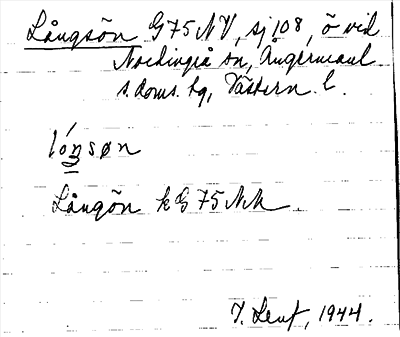 Långsön G75NV, sj 108, ö vid
Nordingrå sn, Ångermanl.
s. doms. tg, Västern. l.
lónsøn
Långön k G 75 NV.
1944.